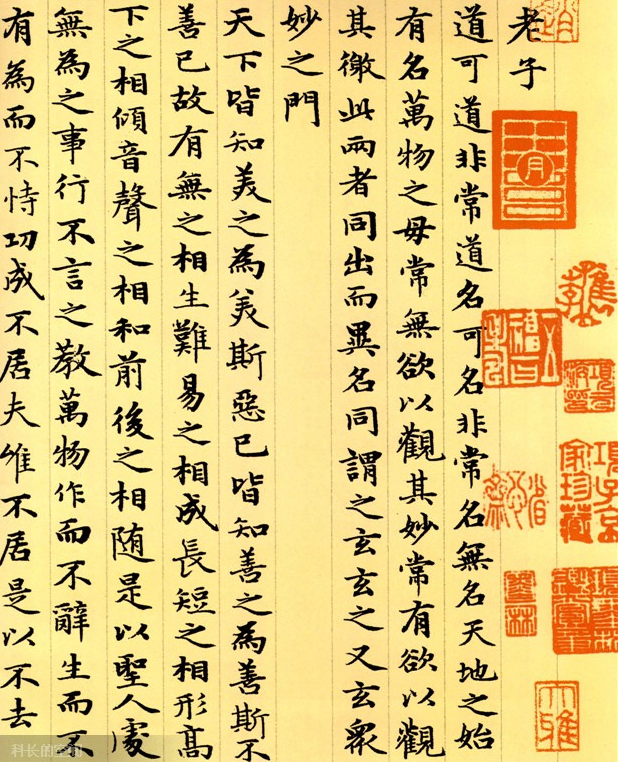 老子
道可道非常道名可名非常名無名天地之始
有名萬物之母常無欲以觀其妙常有欲以觀
其徼此兩者同出而異名同謂之玄玄之又玄眾
妙之門
天下皆知美之為美斯惡已皆知善之為善斯不
善已故有無之相生難易之相成長短之相形高
下之相傾音聲之相和前後之相随是以聖人處
無為之事行不言之教萬物作而不辭生而不
有為而不恃功成不居夫唯不居是以不去
項子京
家珍藏
墨林
科长的空间